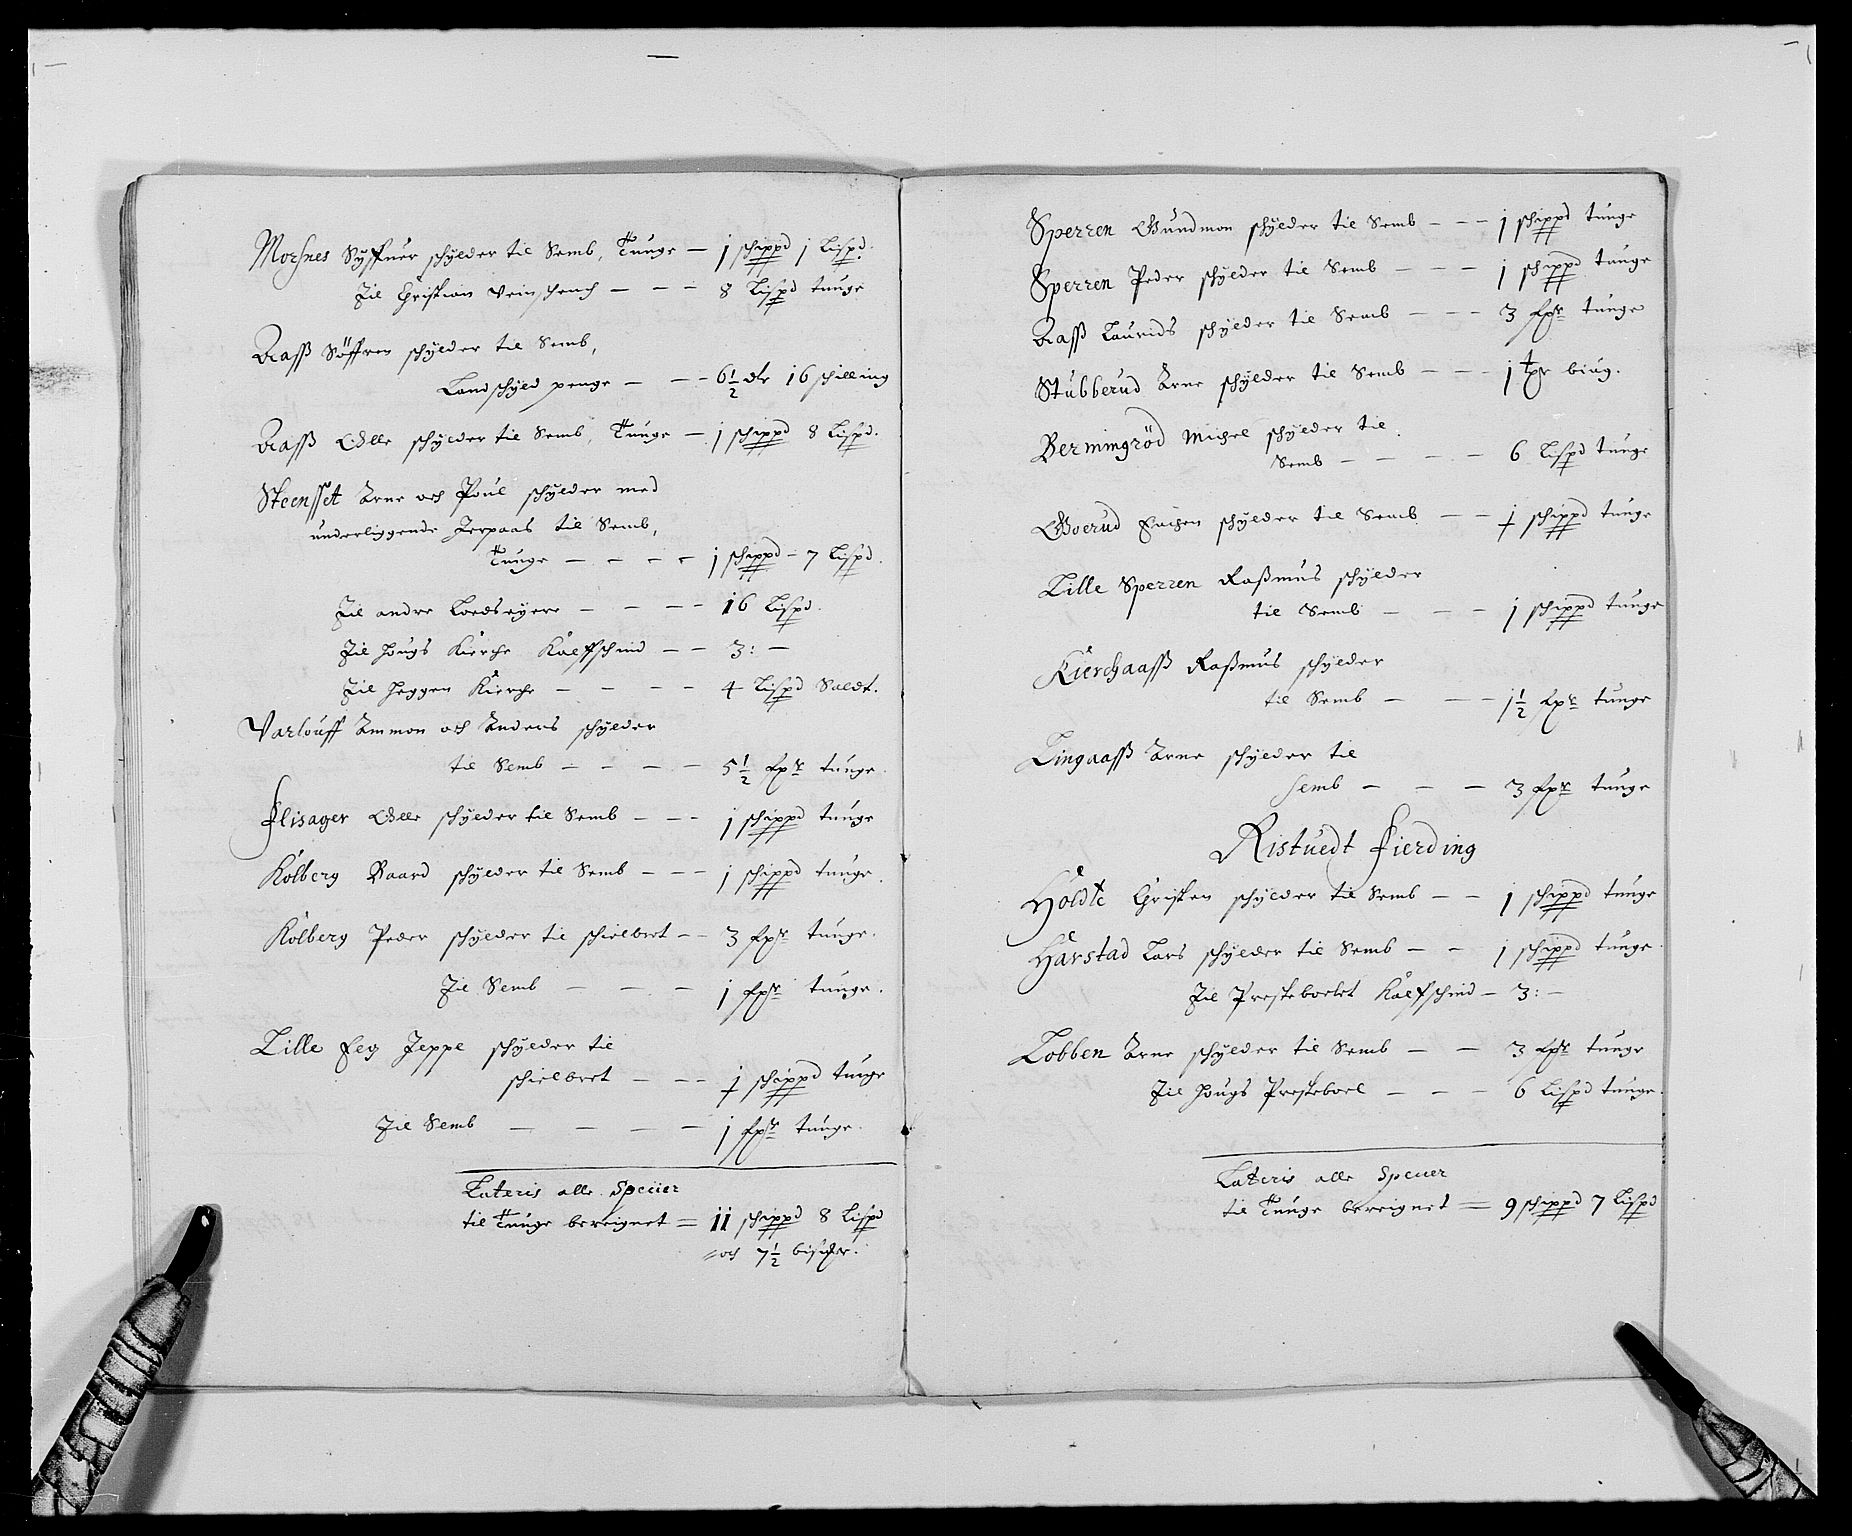 Morsnes Syffuer schÿlder til Semb, Tunge — 1 schippd 1 Lispd.
Til Christian Veinschench — — — 8 Lispd tunge
Aaß Söffren schÿlder til Semb,
Landschÿld penge — — — 6½ dlr 16 schilling
Aaß Olle schÿlder til Semb, Tunge — 1 schippd 8 Lispd.
Steenset Arne och Poul schÿlder med
underliggende Jerpaas til Semb,
Tunge — — — — 1 schippd – 7 Lispd.
Til andre Lodseyere — — — — 16 Lispd.
Til Hougs Kierche Kalfschind — — 3: —
Til Heggen Kierche — — — — 4 Lispd Saldt.
Varlouff Ammon och Anders schÿlder
til Semb — — — — 5½ fpr tunge.
Flisager Olle schÿlder til Semb — — — 1 schippd tunge
Kolberg Baard schÿlder til Semb — — — 1 schippd tunge.
Kolberg Peder schÿlder til schielbret — — 3 fpr tunge.
Til Semb — — — 1 fpr tunge.
Lille Eeg Jeppe schÿlder til
schielbret — — — ½ schippd tunge
Til Semb — — — — 1 fpr tunge.
Lateris alle Speuer
til Tunge beregnet = 11 schippd 8 Lispd
och 7½ bismer.
Sperren Gudmon schÿlder til Semb — — — 1 schippd tunge
Sperren Peder schÿlder til Semb — — — 1 schippd tunge
Aaß Laurids schÿlder til Semb — — — 3 fpr tunge
Stubberud Arne schÿlder til Semb — — — 1 tpr biug.
Bermingröd Michel schÿlder til
Semb — — — — 6 Lispd tunge
Goerud schÿlder til Semb — — ½ schippd tunge
Lille Sperren Raßmus schÿlder
til Semb — — — 1 schippd tunge
Kierchaaß Raßmus schÿlder
til Semb — — — 1½ fpr tunge
Lingaaß Arne schÿlder til
Semb — — — 3 fpr tunge
Ristuedt Fierding
Holdte Christen schÿlder til Semb — — 1 schippd tunge
Harstad Lars schÿlder til Semb — — 1 schippd tunge.
Til Presteboelet Kalfschind — 3: —
Lobben Arne schÿlder til Semb — — 3 fpr tunge
Til Hougs Presteboel — — — 6 Lispd tunge.
Lateris alle Speuer
til Tunge beregnet = 9 schippd 7 Lispd